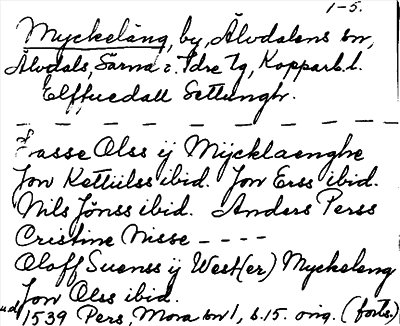 1-5.
Myckeläng, by, Älvdalens sn,
Älvdals, Särna o. Idre tg, Kopparb. l.
Elffuedall Settungh.
Lasse Olss ij Mijcklaenghe
Jon Kettiilss ibid. Jon Erss ibid.
Nils Jönss ibid. Anders Perss
Cristine Nisse - - - -
Oloff Suenss ij West(er) Myckeleng
Jon Olss ibid.
1539 Pers, Mora sn 1, s. 15. orig. (forts.)